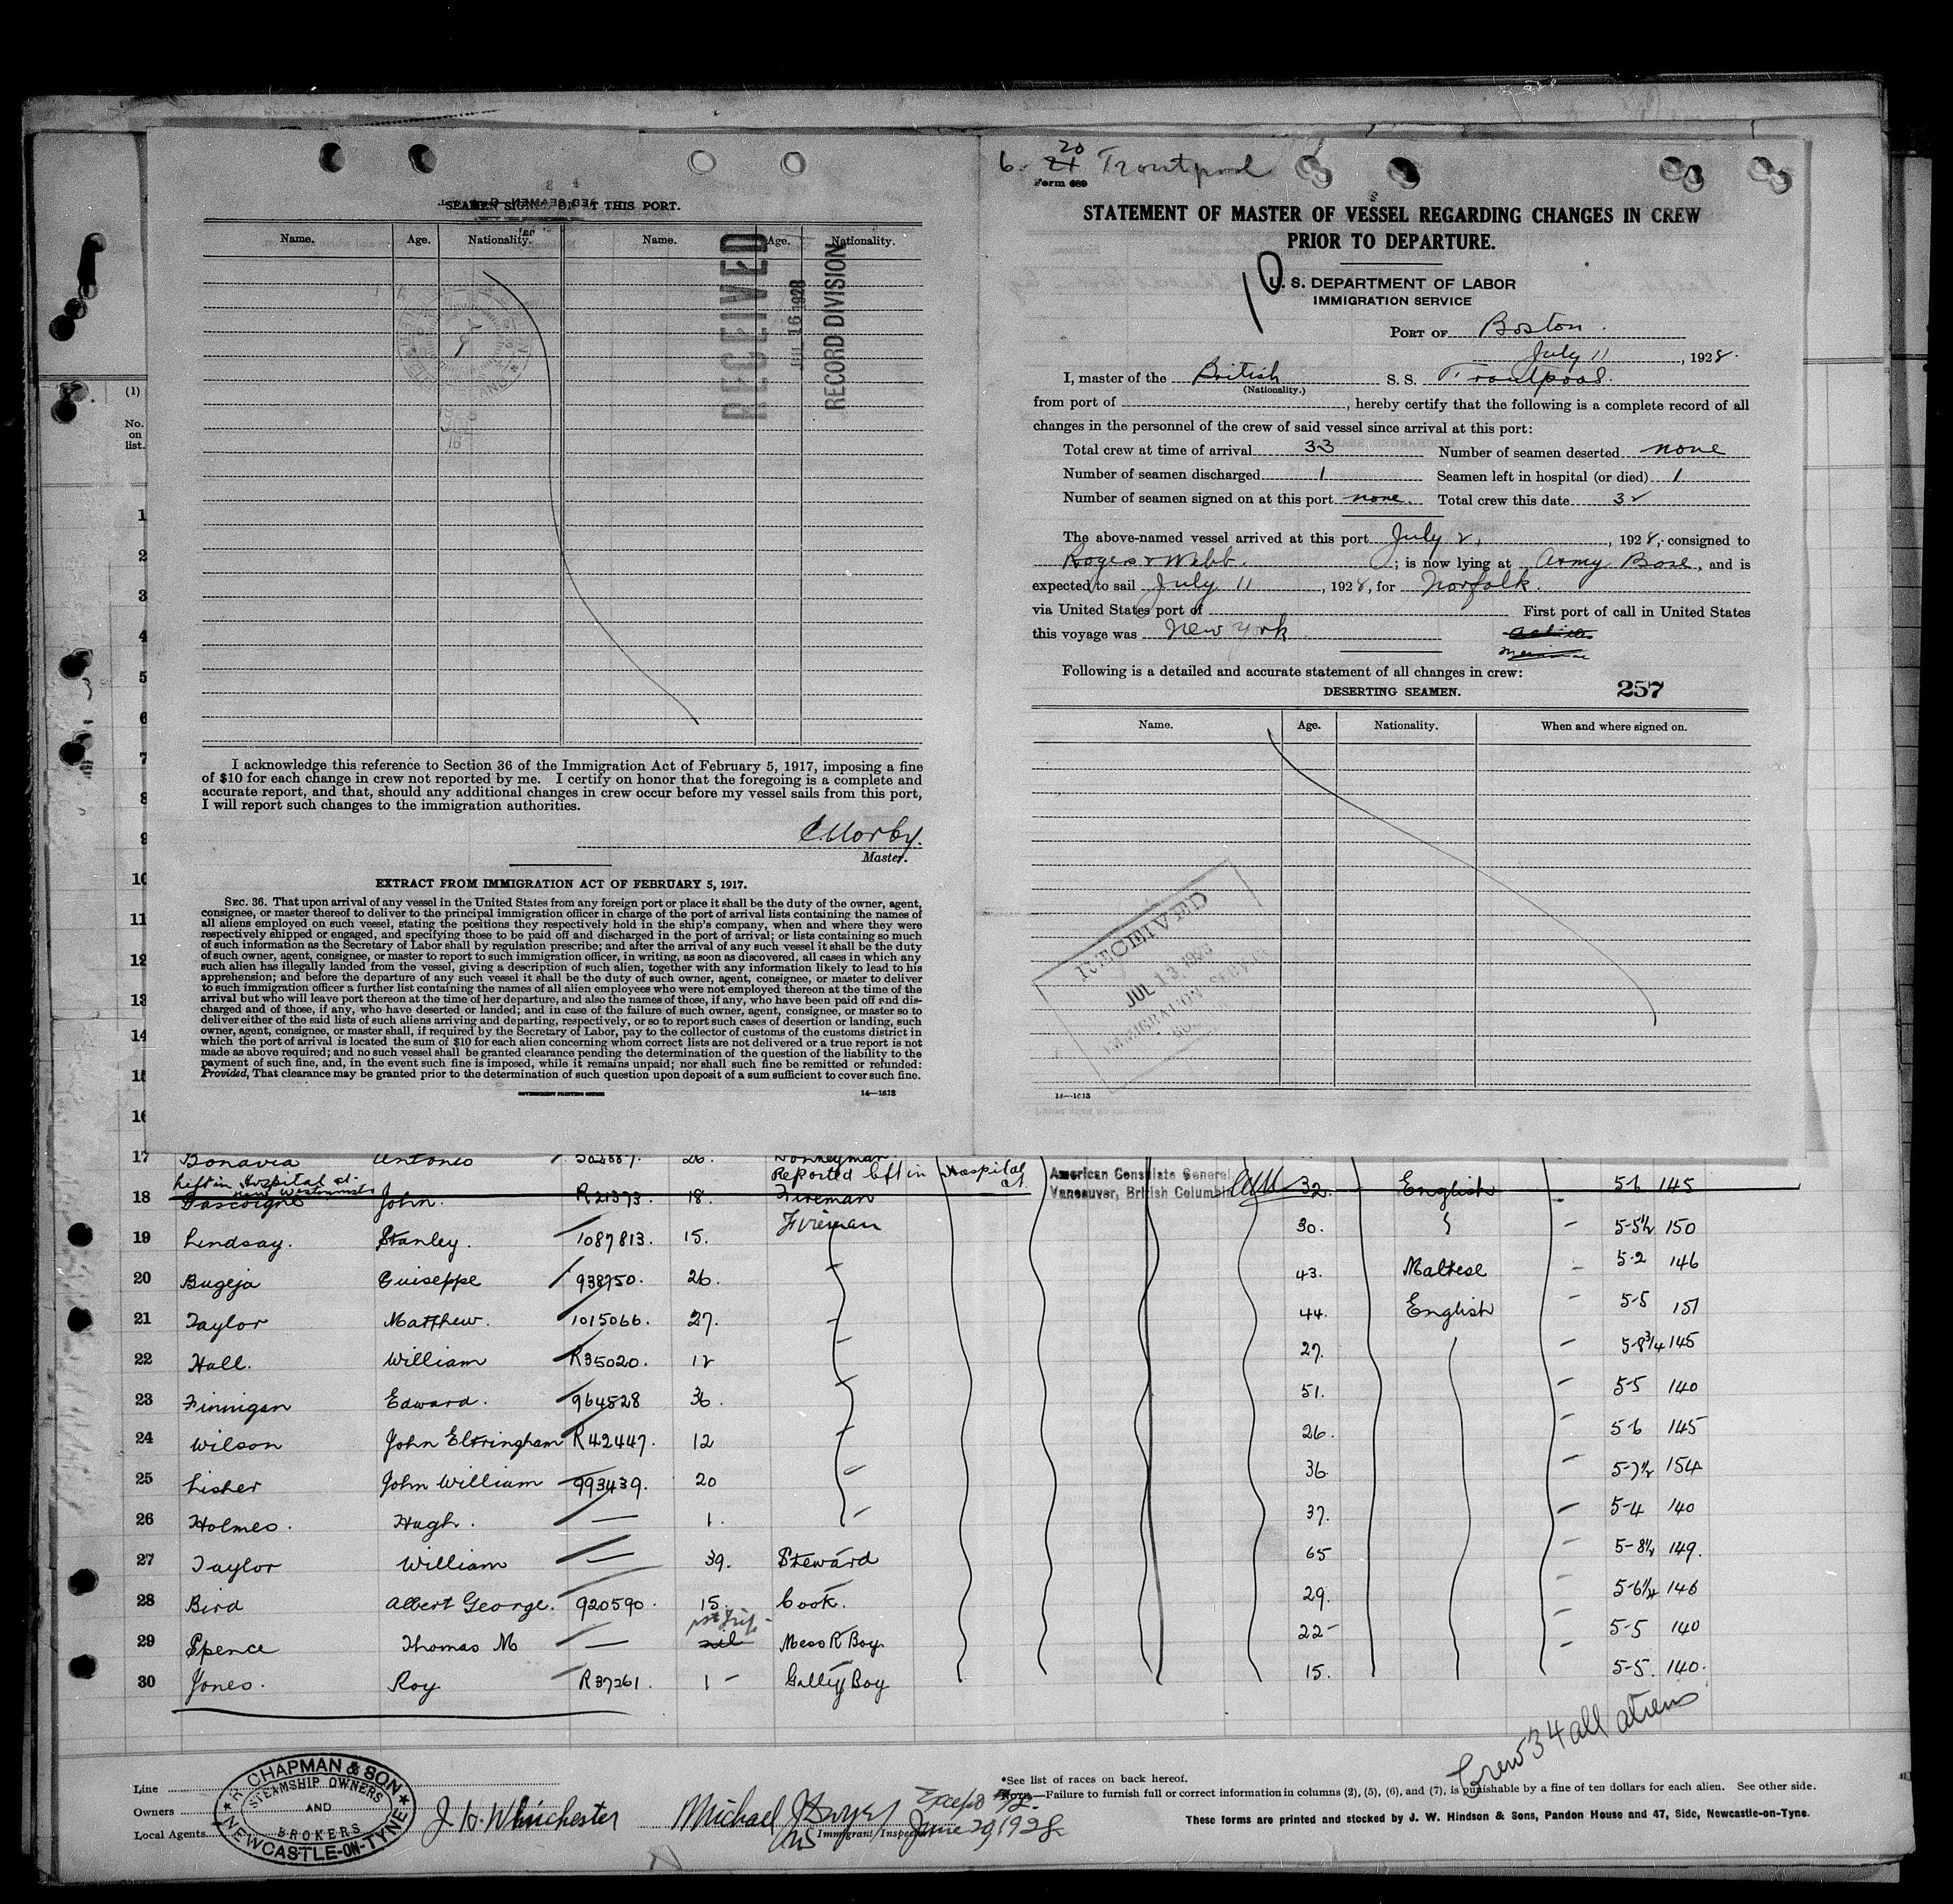 SEAMEN SIGNED ON AT THIS PORT.
Name. Age. Nationality. Name. Age. Nationality.
RECEIVED
JUL 16 1928
RECORD DIVISION
I acknowledge this reference to Section 36 of the Immigration Act of February 5, 1917, imposing a fine
of $10 for each change in crew not reported by me. I certify on honor that the foregoing is a complete and
accurate report, and that, should any additional changes in crew occur before my vessel sails from this port,
I will report such changes to the immigration authorities.
Master.
EXTRACT FROM IMMIGRATION ACT OF FEBRUARY 5, 1917.
SEC. 36. That upon arrival of any vessel in the United States from any foreign port or place it shall be the duty of the owner, agent,
consignee, or master thereof to deliver to the principal immigration officer in charge of the port of arrival lists containing the names of
all aliens employed on such vessel, stating the positions they respectively hold in the ship's company, when and where they were
respectively shipped or engaged, and specifying those to be paid off and discharged in the port of arrival; or lists containing so much
of such information as the Secretary of Labor shall by regulation prescribe; and after the arrival of any such vessel it shall be the duty
of such owner, agent, consignee, or master to report to such immigration officer, in writing, as soon as discovered, all cases in which any
such alien has illegally landed from the vessel, giving a description of such alien, together with any information likely to lead to his
apprehension; and before the departure of any such vessel it shall be the duty of such owner, agent, consignee, or master to deliver
to such immigration officer a further list containing the names of all alien employees who were not employed thereon at the time of the
arrival but who will leave port thereon at the time of her departure, and also the names of those, if any, who have been paid off and dis-
charged and of those, if any, who have deserted or landed; and in case of the failure of such owner, agent, consignee, or master so to
deliver either of the said lists of such aliens arriving and departing, respectively, or so to report such cases of desertion or landing, such
owner, agent, consignee, or master shall, if required by the Secretary of Labor, pay to the collector of customs of the customs district in
which the port of arrival is located the sum of $10 for each alien concerning whom correct lists are not delivered or a true report is not
made as above required; and no such vessel shall be granted clearance pending the determination of the question of the liability to the
payment of such fine, and, in the event such fine is imposed, while it remains unpaid; nor shall such fine be remitted or refunded:
Provided, That clearance may be granted prior to the determination of such question upon deposit of a sum sufficient to cover such fine.
GOVERNMENT PRINTING OFFICE 14—1613
6. 20 21 Troutpool
Form 689
STATEMENT OF MASTER OF VESSEL REGARDING CHANGES IN CREW
PRIOR TO DEPARTURE.
U. S. DEPARTMENT OF LABOR
IMMIGRATION SERVICE
PORT OF Boston.
July 11, 1928.
I, master of the British S. S. Troutpool.
(Nationality.)
from port of , hereby certify that the following is a complete record of all
changes in the personnel of the crew of said vessel since arrival at this port:
Total crew at time of arrival 33 Number of seamen deserted none
Number of seamen discharged 1 Seamen left in hospital (or died) 1
Number of seamen signed on at this port none. Total crew this date 32
The above-named vessel arrived at this port July 2, 1928, consigned to
Rogers & Webb. ; is now lying at Army Base, and is
expected to sail July 11, 1928, for Norfolk.
via United States port of First port of call in United States
this voyage was New York
Following is a detailed and accurate statement of all changes in crew:
DESERTING SEAMEN. 257
Name. Age. Nationality. When and where signed on.
RECEIVED
JUL 13 1928
IMMIGRATION SERVICE
14—1613
(1)
No.
on
list.
1
2
3
4
5
6
7
8
9
10
11
12
13
14
15
16
17 Bonavia Antonio 502887. 26. Donkeyman
Left in Hospital at New Westminster Reported left in Hospital at American Consulate General Vancouver, British Columbia
18 Gascoigne John. R21373. 18. Fireman 32. English 5-6 145
19 Lindsay. Stanley. 1087813. 15. Fireman 30. 5-5½ 150
20 Bugeja Guiseppe 938750. 26. 43. Maltese 5-2 146
21 Taylor Matthew. 1015066. 27. 44. English 5-5 151
22 Hall. William R35020. 12 27. 5-8¾ 145
23 Finnigan Edward. 964528 36. 51. 5-5 140
24 Wilson John Eltringham R42447. 12 26. 5-6 145
25 Lisher John William 993439. 20 36. 5-7½ 154
26 Holmes. Hugh. — 1. 37. 5-4 140
27 Taylor William — 39. Steward 65 5-8½ 149.
28 Bird Albert George. 920590. 15. Cook. 29. 5-6¼ 146
1st trip
29 Spence Thomas M — nil Mess R Boy 22 5-5 140
30 Jones. Roy R37261. 1 Galley Boy 15. 5-5. 140.
Crew 34 all aliens
Line
Owners
Local Agents
R. CHAPMAN & SON
STEAMSHIP OWNERS
AND
BROKERS
NEWCASTLE-ON-TYNE
J. H. Whinchester
Michael J Dwyer
Immigrant Inspector
June 29, 1928
*See list of races on back hereof.
NOTE.—Failure to furnish full or correct information in columns (2), (5), (6), and (7), is punishable by a fine of ten dollars for each alien. See other side.
These forms are printed and stocked by J. W. Hindson & Sons, Pandon House and 47, Side, Newcastle-on-Tyne.